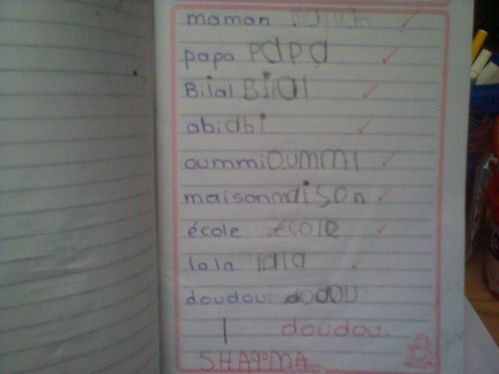 maman maman
papa papa
Bilal Bilal
abi abi
oummi oummi
maison maison
école école
lala lala
doudou dodou
doudou.